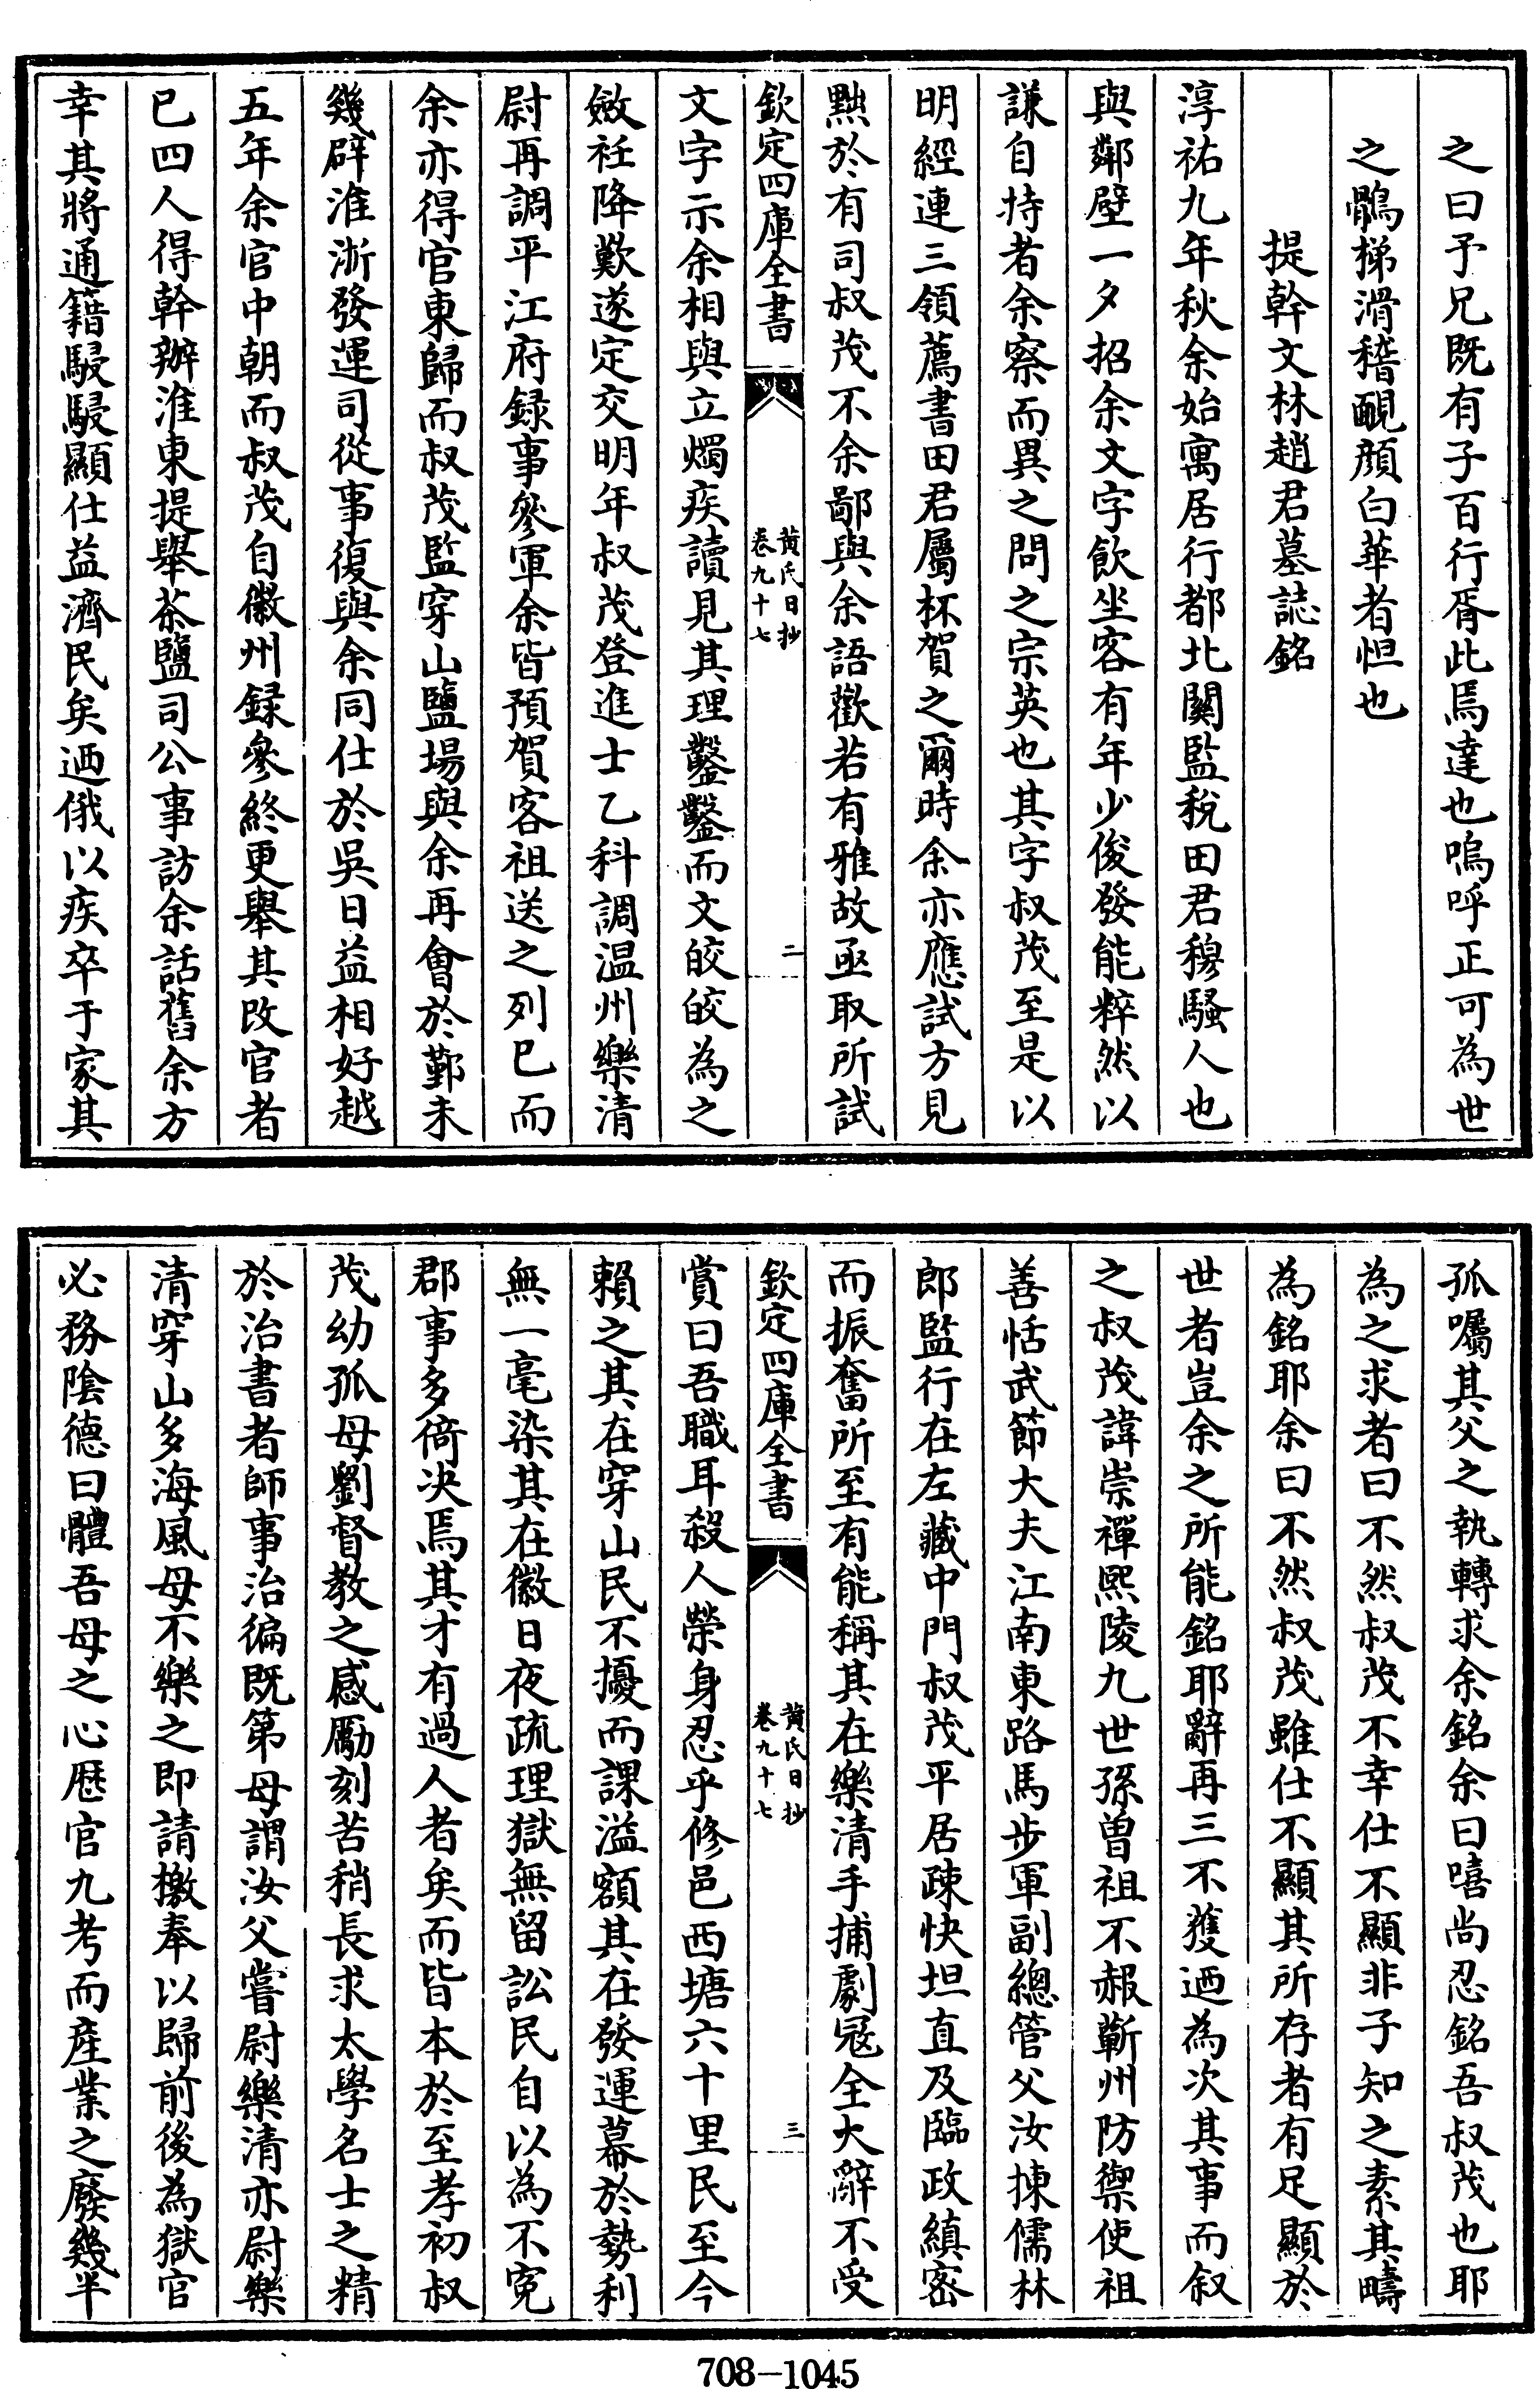 之曰予兄既有子百行胥此焉達也嗚呼正可為世
之鶻梯滑稽覼顔白華者怛也
提幹文林趙君墓誌銘
淳祐九年秋余始寓居行都北關監稅田君穆騷人也
與鄰壁一夕招余文字飲坐客有年少俊發能粹然以
謙自持者余察而異之問之宗英也其字叔茂至是以
明經連三領薦書田君屬杯賀之爾時余亦應試方見
黜於有司叔茂不余鄙與余語歡若有雅故亟取所試
欽定四庫全書
黄氏日抄
卷九十七
二
文字示余相與立燭疾讀見其理鑿鑿而文皎皎為之
斂衽降歎遂定交明年叔茂登進士乙科調温州樂清
尉再調平江府録事參軍余皆預賀客祖送之列已而
余亦得官東歸而叔茂監穿山鹽場與余再會於鄞未
幾辟淮浙發運司從事復與余同仕於吳日益相好越
五年余官中朝而叔茂自徽州録參終更舉其改官者
已四人得幹辦淮東提舉茶鹽司公事訪余話舊余方
幸其將通籍駸駸顯仕益濟民矣迺俄以疾卒于家其
孤囑其父之執轉求余銘余曰嘻尚忍銘吾叔茂也耶
為之求者曰不然叔茂不幸仕不顯非子知之素其疇
為銘耶余曰不然叔茂雖仕不顯其所存者有足顯於
世者豈余之所能銘耶辭再三不獲迺為次其事而叙
之叔茂諱崇禪熙陵九世孫曽祖不赧蘄州防禦使祖
善恬武節大夫江南東路馬步軍副總管父汝揀儒林
郎監行在左藏中門叔茂平居疎快坦直及臨政縝密
而振奮所至有能稱其在樂清手捕劇冦全大辭不受
欽定四庫全書
黄氏日抄
卷九十七
三
賞曰吾職耳殺人榮身忍乎修邑西塘六十里民至今
賴之其在穿山民不擾而課溢額其在發運幕於勢利
無一毫染其在徽日夜疏理獄無留訟民自以為不寃
郡事多倚決焉其才有過人者矣而皆本於至孝初叔
茂幼孤母劉督教之感勵刻苦稍長求太學名士之精
於治書者師事治徧既第母謂汝父嘗尉樂清亦尉樂
清穿山多海風母不樂之即請檄奉以歸前後為獄官
必務陰德曰體吾母之心歴官九考而産業之廢幾半
708-1045